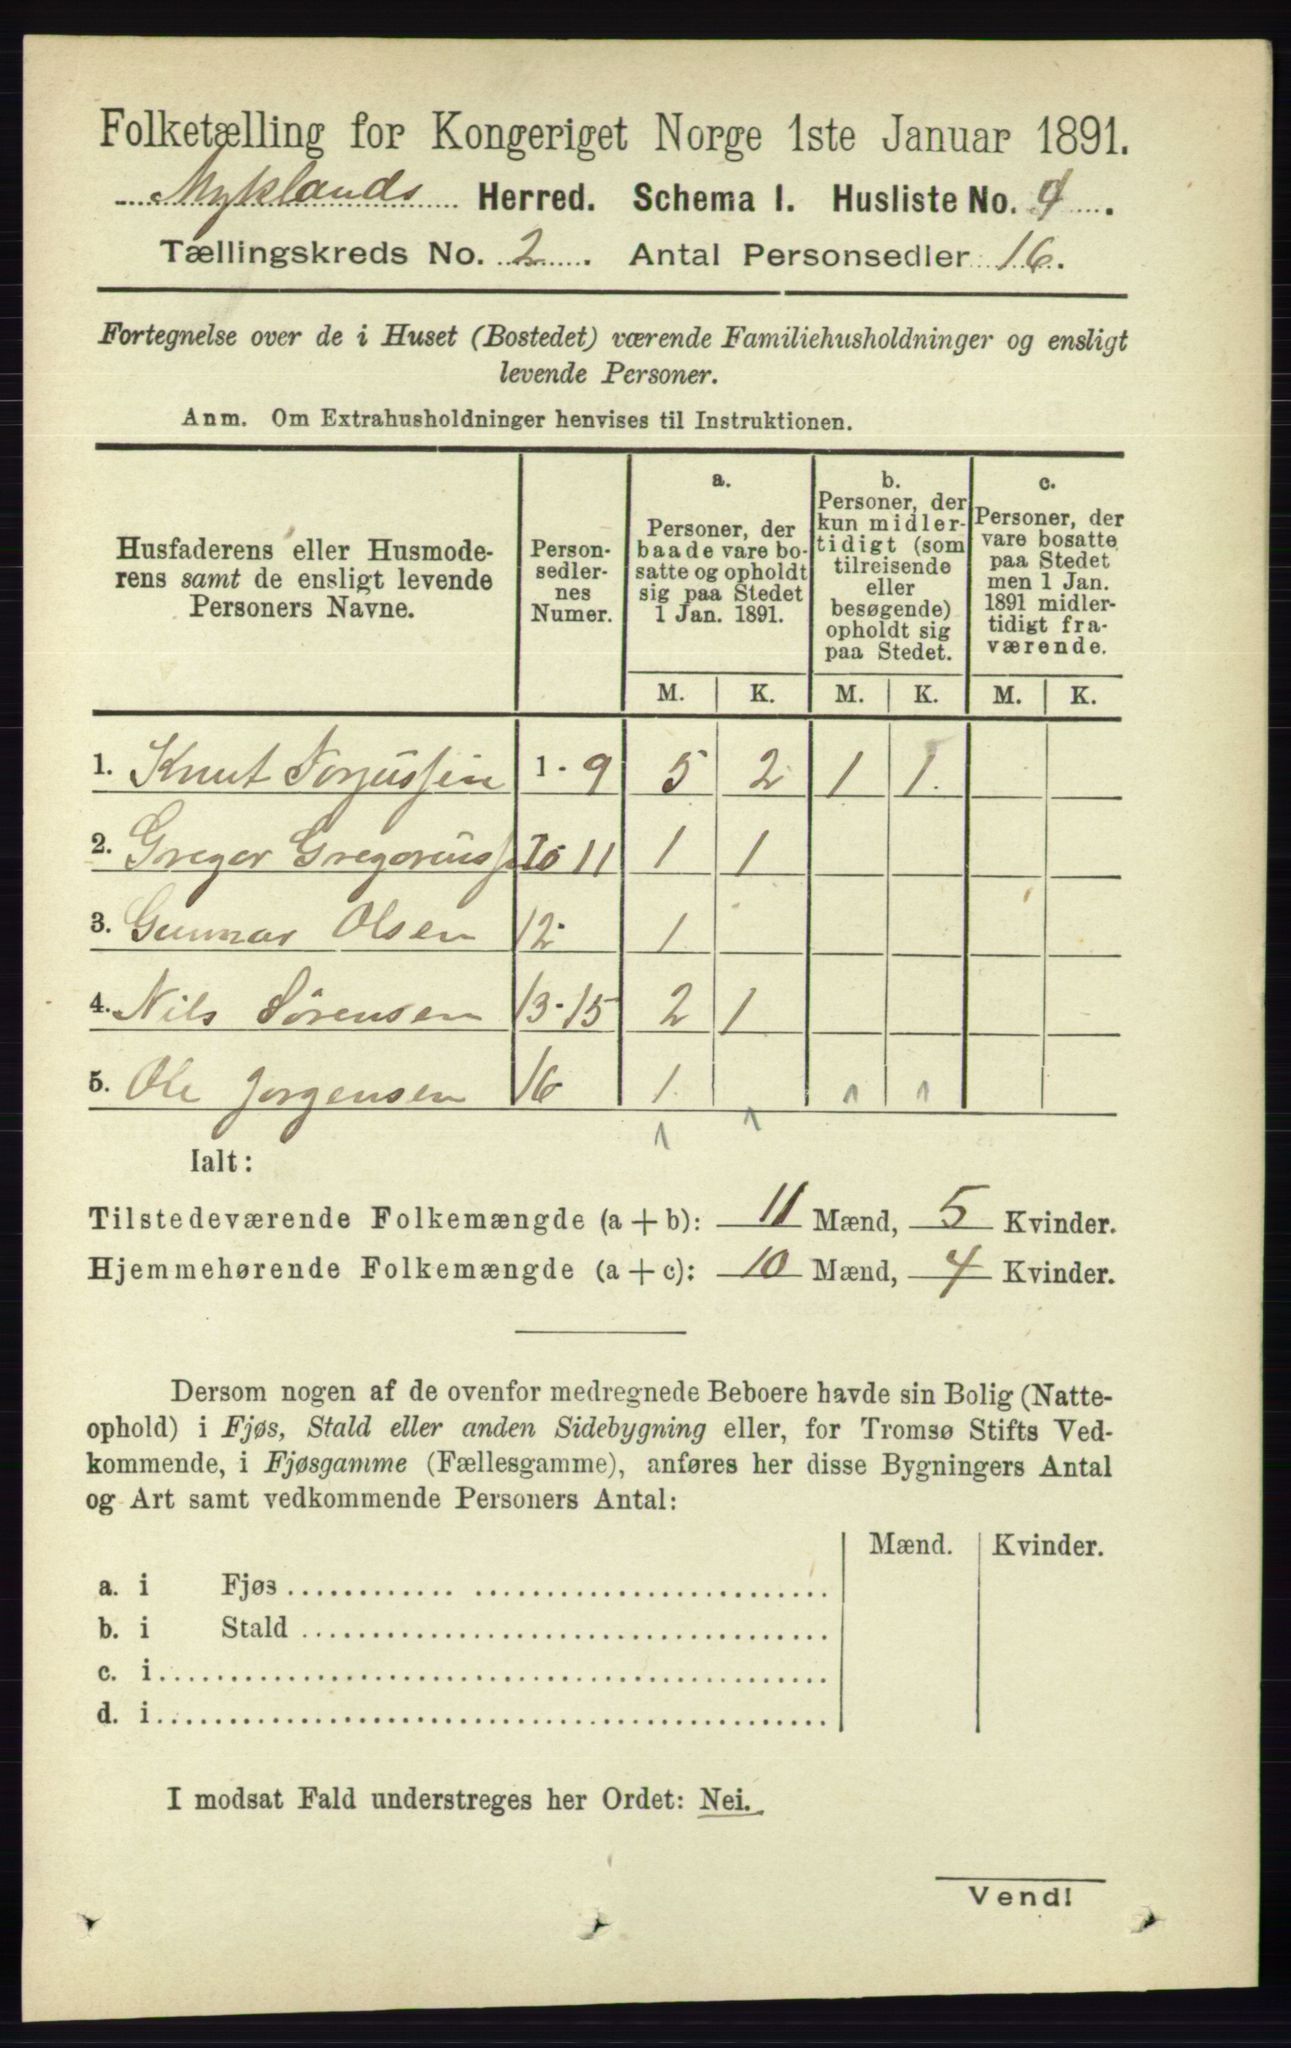 Folketælling for Kongeriget Norge 1ste Januar 1891.
Myklands Herred. Schema I. Husliste No. 4.
Tællingskreds No. 2. Antal Personsedler 16.
Fortegnelse over de i Huset (Bostedet) værende Familiehusholdninger og ensligt
levende Personer.
Anm. Om Extrahusholdninger henvises til Instruktionen.
Husfaderens eller Husmode-
rens samt de ensligt levende
Personers Navne.
Person-
sedler-
nes
Numer.
a.
Personer, der
baade vare bo-
satte og opholdt
sig paa Stedet
1 Jan. 1891.
b.
Personer, der
kun midler-
tidigt (som
tilreisende
eller
besøgende)
opholdt sig
paa Stedet.
c.
Personer, der
vare bosatte
paa Stedet
men 1 Jan.
1891 midler-
tidigt fra-
værende.
M. K. M. K. M. K.
1. Knut 1-9 5 2 1 1
2. Gregor Gregoriuss 10 11 1 1
3. Gunnar Olsen 12 1
4. Nils Sørensen 13-15 2 1
5. Ole Jorgensen 16 1
Ialt:
Tilstedeværende Folkemængde (a + b): 11 Mænd, 5 Kvinder.
Hjemmehørende Folkemængde (a + c): 10 Mænd, 4 Kvinder.
Dersom nogen af de ovenfor medregnede Beboere havde sin Bolig (Natte-
ophold) i Fjøs, Stald eller anden Sidebygning eller, for Tromsø Stifts Ved-
kommende, i Fjøsgamme (Fællesgamme), anføres her disse Bygningers Antal
og Art samt vedkommende Personers Antal:
Mænd. Kvinder.
a. i Fjøs
b. i Stald
c. i
d. i
I modsat Fald understreges her Ordet: Nei.
Vend!